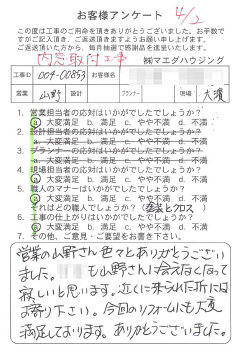 お客様アンケート 4/2
この度は工事のご用命を頂きありがとうございました。お手数で
すがご記入頂き、ご返送頂きますようお願い申し上げます。
ご返送頂いた方から、毎月抽選で感謝品を進呈いたします。
内窓取付工事 ㈱マエダハウジング
工事ID 004-00853 お客様名
営業 山野 設計 プランナー 現場 大濱
1. 営業担当者の応対はいかがでしたでしょうか?
a 大変満足 b. 満足 c. やや不満 d. 不満
2. 設計担当者の応対はいかがでしたでしょうか?
a. 大変満足 b. 満足 c. やや不満 d. 不満
3. プランナーの応対はいかがでしたでしょうか?
a. 大変満足 b. 満足 c. やや不満 d. 不満
4. 現場担当者の応対はいかがでしたでしょうか?
a 大変満足 b. 満足 c. やや不満 d. 不満
5. 職人のマナーはいかがでしたでしょうか?
a 大変満足 b. 満足 c. やや不満 d. 不満
それはどの職人でしょうか?(塗装とクロス)
6. 工事の仕上がりはいかがでしたでしょうか?
a 大変満足 b. 満足 c. やや不満 d. 不満
7. その他、ご意見・ご要望をお書き下さい。
営業の山野さん色々とありがとうござい
ました。 も山野さんに会えなくなって
寂しいと思います。近くに来られた折には
お寄り下さい。今回のリフォームにも大変
満足しております。ありがとうございました。